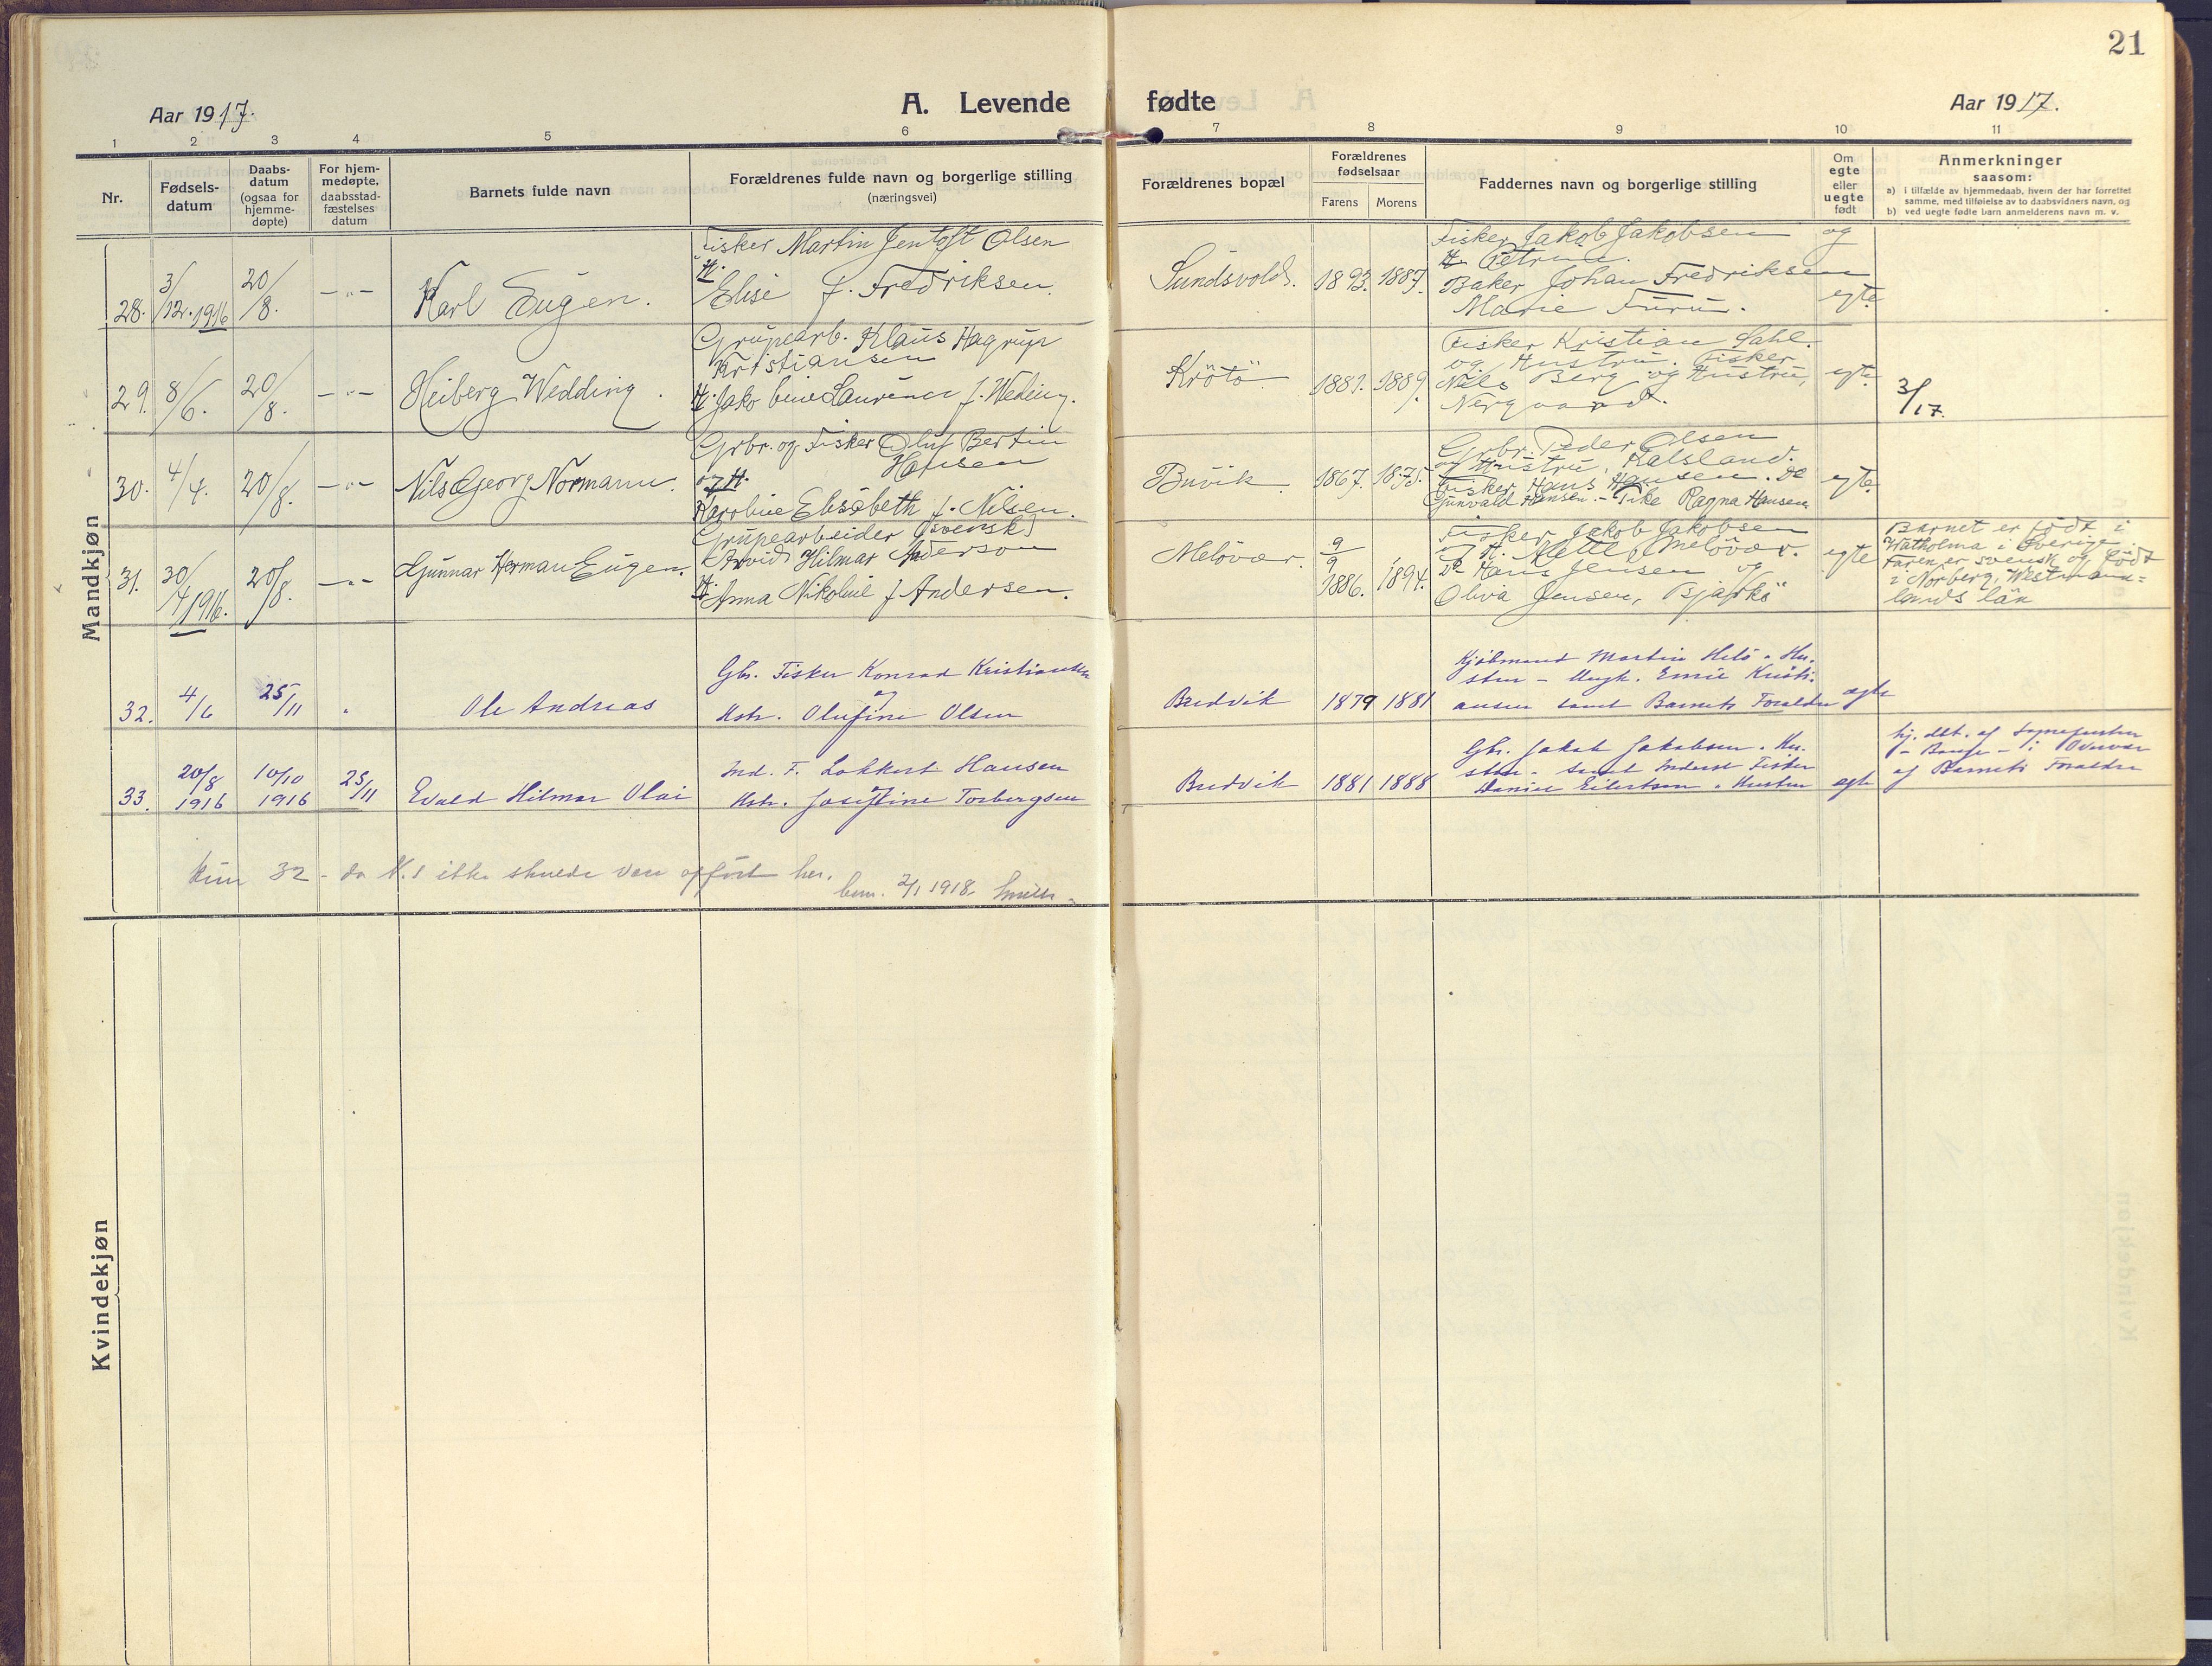 21
Aar 1917.
A. Levende fødte
Aar 1917.
1 2 3 4 5 6 7 8 9 10 11
Nr.
Fødsels-
datum
Daabs-
datum
(ogsaa for
hjemme-
døpte)
For hjem-
medøpte,
daabsstad-
fæstelses
datum
Barnets fulde navn
Forældrenes fulde navn og borgerlige stilling
(næringsvei)
Forældrenes bopæl
Forældrenes
fødselsaar
Farens Morens
Faddernes navn og borgerlige stilling
Om
egte
eller
uegte
født
Anmerkninger
saasom:
a) i tilfælde av hjemmedaab, hvem der har forrettet
samme, med tilføielse av to daabsvidners navn, og
b) ved uegte fødte barn anmelderens navn m. v.
Mandkjøn
28.
3/12. 1916
20/8.
-"-
Karl Eugen.
Fisker Martin Jentoft Olsen
H.
Elise f. Fredriksen.
Sundsvold.
1893. 1887.
Fisker Jakob Jakobsen og
H. Petrine.
Baker Johan Fredriksen
Marie Furu.
egte
29.
8/6.
20/8.
-"-
Heiberg Wedding.
Grupearb. Klaus Hagrup
Kristiansen
H. Jakobine Laurence f. Weding.
Krötö
1881. 1889.
Fisker Kristian Dahl.
og Hustru. Fisker
Nils Berg og Hustru,
Nergaard.
egte
3/17.
30.
4/4.
20/8.
-"-
Nils Georg Normann.
Grbr. og Fisker Oluf Bertin
Hansen
og H.
Karoline Elisabeth f. Nilsen.
Buvik.
1867. 1875.
Grbr. Peder Olsen
og Hustru, Kalsland.
Fisker Hans Hansen. do
Gunvald Hansen. - Pike Ragna Hansen
egte
31.
30/4 1916.
20/8.
-"-
Gunnar Herman Eugen.
Grupearbeider (svensk)
Arvid Hilmar Anderson
H. Anna Nikoline f. Andersen.
Melövær.
9/9
1886. 1894.
Fisker Jakob Jakobsen
og H. Mette, Melövær.
do Hans Jensen og
Oliva Jensen, Bjarkö
egte
Barnet er födt i
Watholma i Sverige.
Faren er svensk og födt
i Norberg, Westman=
lands län
32.
4/6
25/11
"
Ole Andreas
Gbr. Fisker Konrad Kristiansen
og
Hstr. Olufine Olsen
Bredvik
1879 1881
Kjöbmand Martin Helö o Hu-
stru - Ungk. Emil Kristi-
ansen samt Barnets Foreldre
egte
33.
20/8
1916
10/10
1916
25/11
Evald Hilmar Olai
Ind. F. Lokkert Hansen
og
Hstr. Josefine Torbergsen
Bredvik
1881 1888
Gbr. Jakob Jakobsen o Hu-
stru - samt Inderst Fisker
Daniel Eilertsen o Hustru
egte
hj. dbt. af Sognepresten
af Barnets Foreldre
Kun 32 - da N. 1 ikke skulde være opfört her.
bem. 2/1 1918.
Kvindekjøn